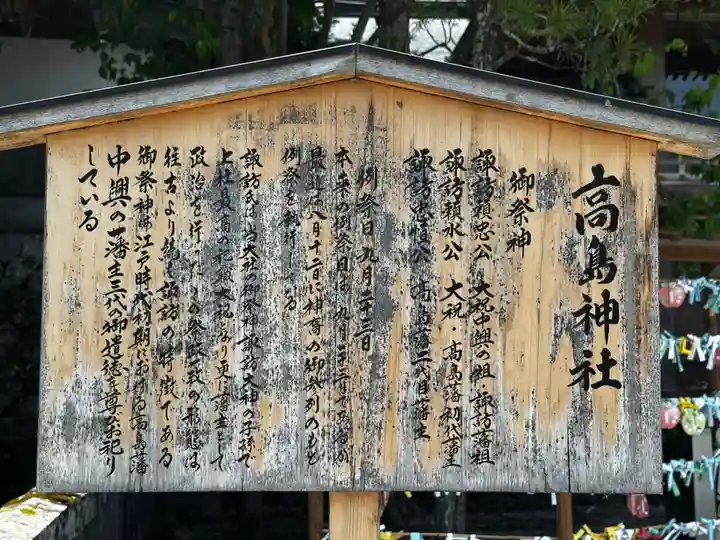 高島神社
御祭神
諏訪頼忠公 大祝中興の祖・諏訪藩祖
諏訪頼水公 大祝・高島藩初代藩主
諏訪忠恒公 高島藩二代目藩主
例祭日九月二十三日
本来の例祭日は、九月二十三日であるが
最近は八月十二日に神斎の御参列のもと
例祭を執行している
諏訪氏は当大社の御祭神諏訪大神の子孫で
上社最高の祀職大祝であり更に藩主として
政治を行
祭政一致の形態は
往古より続く諏訪の特徴である
御祭神は江戸時代初期における高島藩
中興の藩主三代の御遺徳を尊び祀り
している